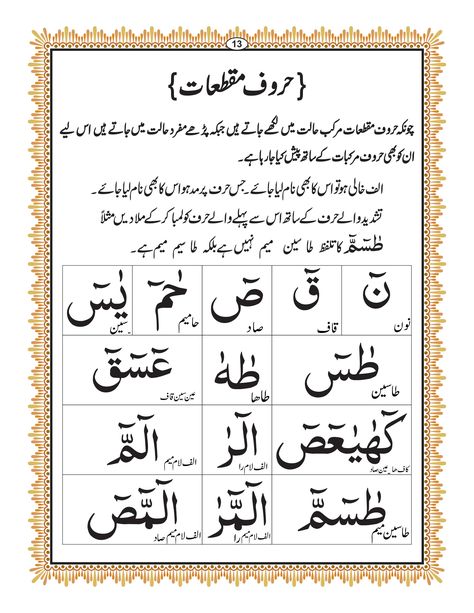 13
{حروف مقطعات}
چونکہ حروف مقطعات مرکب حالت میں لکھے جاتے ہیں جبکہ پڑھے مفرد حالت میں جاتے ہیں اس لیے
ان کو بھی حروف مرکبات کے ساتھ پیش کیا جا رہا ہے۔
الف خالی ہو تو اس کا بھی نام لیا جائے۔ جس حرف پر مد ہو اس کا بھی نام لیا جائے۔
تشدید والے حرف کے ساتھ اس سے پہلے والے حرف کو لمبا کر کے ملا دیں مثلاً
طٰسٓمّٓ کا تلفظ طا سین میم نہیں ہے بلکہ طا سیم میم ہے۔
نٓ قٓ صٓ حٰمٓ یٰسٓ
نون قاف صاد حامیم یٰسین
طٰسٓ طٰهٰ عٓسٓقٓ
طاسین طاھا عین سین قاف
كٓهٰيٰعٓصٓ الٓرٰ الٓمّٓ
کاف ھا یا عین صاد الف لام را الف لام میم
طٰسٓمّٓ الٓمّٓرٰ الٓمّٓصٓ
طاسین میم الف لام میم را الف لام میم صاد